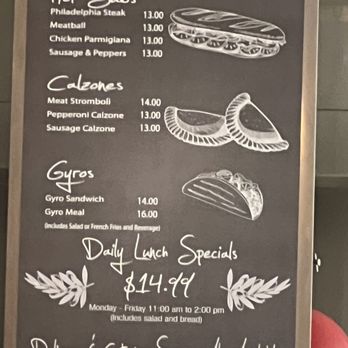 Hot Subs
Philadelphia Steak 13.00
Meatball 13.00
Chicken Parmigiana 13.00
Sausage & Peppers 13.00
Calzones
Meat Stromboli 14.00
Pepperoni Calzone 13.00
Sausage Calzone 13.00
Gyros
Gyro Sandwich 14.00
Gyro Meal 16.00
(Includes Salad or French Fries and Beverage)
Daily Lunch Specials
$14.99
Monday - Friday 11:00 am to 2:00 pm
(Includes salad and bread)